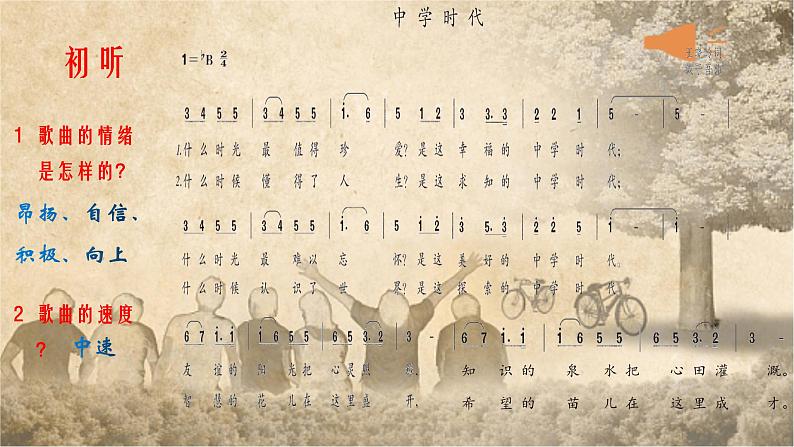 中学时代
初听
1=♭B 2/4
1 歌曲的情绪
是怎样的?
昂扬、自信、
积极、向上
2 歌曲的速度
? 中速
3 4 5 5 | 3 4 5 5 | 1. 6 | 5 1 2 | 3 3. 3 | 2 2 1 | 5 - | 5 -
1.什么时光 最 值得 珍 爱?是这 幸福的 中学时 代;
2.什么时候 懂 得了 人 生?是这 求知的 中学时 代;
3 4 5 5 | 3 4 5 5 | 1. 6 | 5 1 2 | 3 5 3 | 2 3 2 | 1 - | 1 -
什么时光 最 难以 忘 怀?是这 美好的 中学时 代。
什么时候 认 识了 世 界?是这 探索的 中学时 代。
6 7 1. 1 | 6 5 5 | 6 5 3. 2 | 3 - | 6 7 1. 1 | 6 5 5 | 6 5 3. 2 | 3 -
友谊的 阳 光把 心灵照 耀, 知识的 泉 水把 心田灌 溉。
智慧的 花 儿在 这里盛 开, 希望的 苗 儿在 这里成 才。